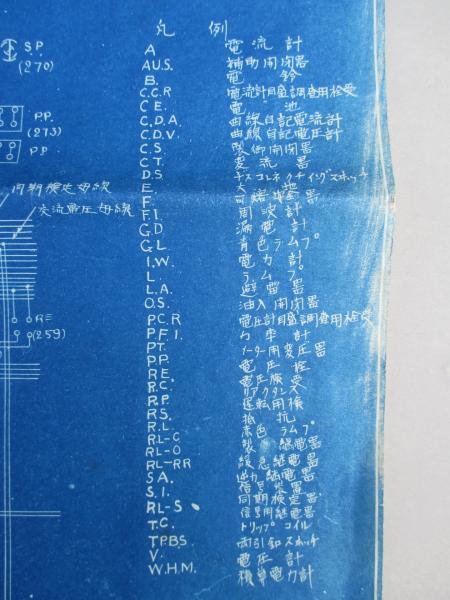 凡例
A 電流計
AU.S. 補助開閉器
B. 電鈴
C.C.R 電流計目盛調査用栓受
C E. 電池
C.D.A. 曲線自記電流計
C.D.V. 曲線自記電圧計
C.S. 制御開閉器
C T. 変流器
D.S ヂスコネクチイングスヰッチ
E. 大地
F. 可熔器
F.I. 周波計
G.D 漏電計
G.L 青色ラムプ
I.W. 電力計
L. ラムプ
L.A. 避雷器
O.S. 油入開閉器
P.C.R 電圧計目盛調査用栓受
P.F.I. 力率計
P.T. メーター用変圧器
P.P. 電圧栓
R.E. 電圧栓受
R.C. リアクタンス
R.P. 運転用栓
R.S. 抵抗
R.L. 赤色ラムプ
RL-C 継電器
RL-O 緩急継電器
RL-RR 逆力継電器
S.A. 信号装置
S.I. 同期検定器
RL-S 信号用継電器
T.C. トリップコイル
T.P.B.S. 両引釦スヰッチ
V. 電圧計
W.H.M. 積算電力計
S.P.
(270)
P.P.
(273)
P.P
同期検定母線
交流電圧母線
RE
(259)